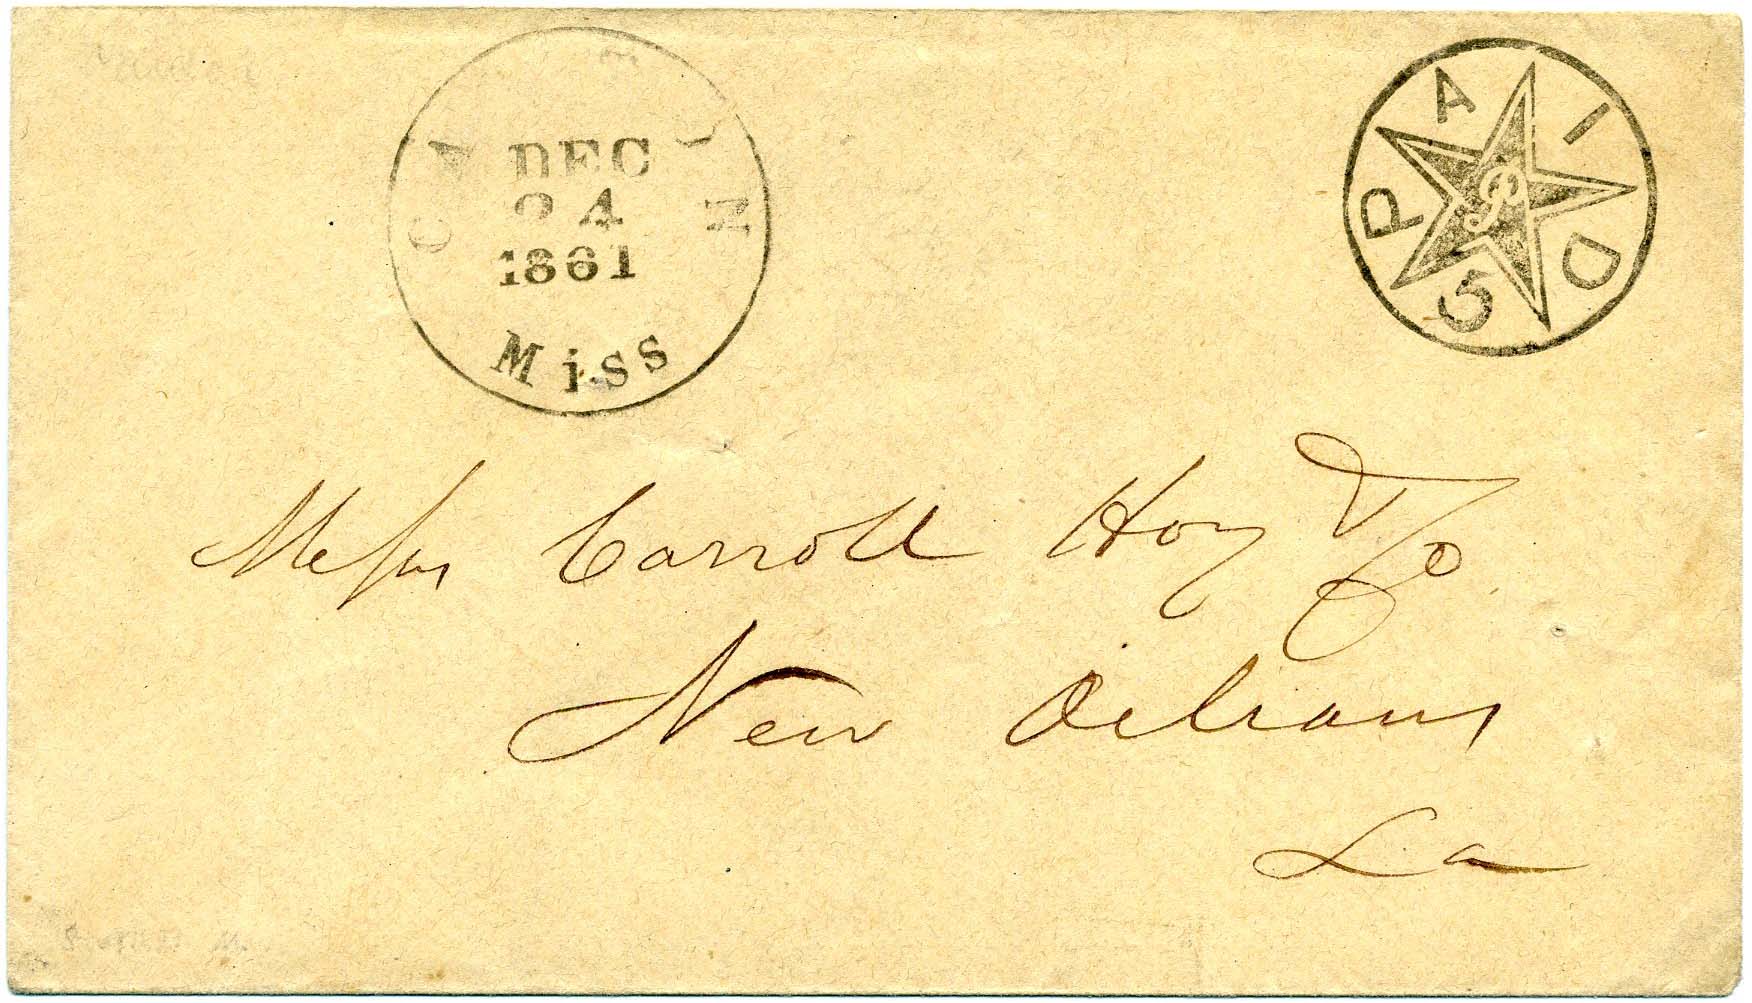 CA N
DEC
24
1861
Miss
PAID
5
Messrs Carroll Hoy & Co.
New Orleans
La